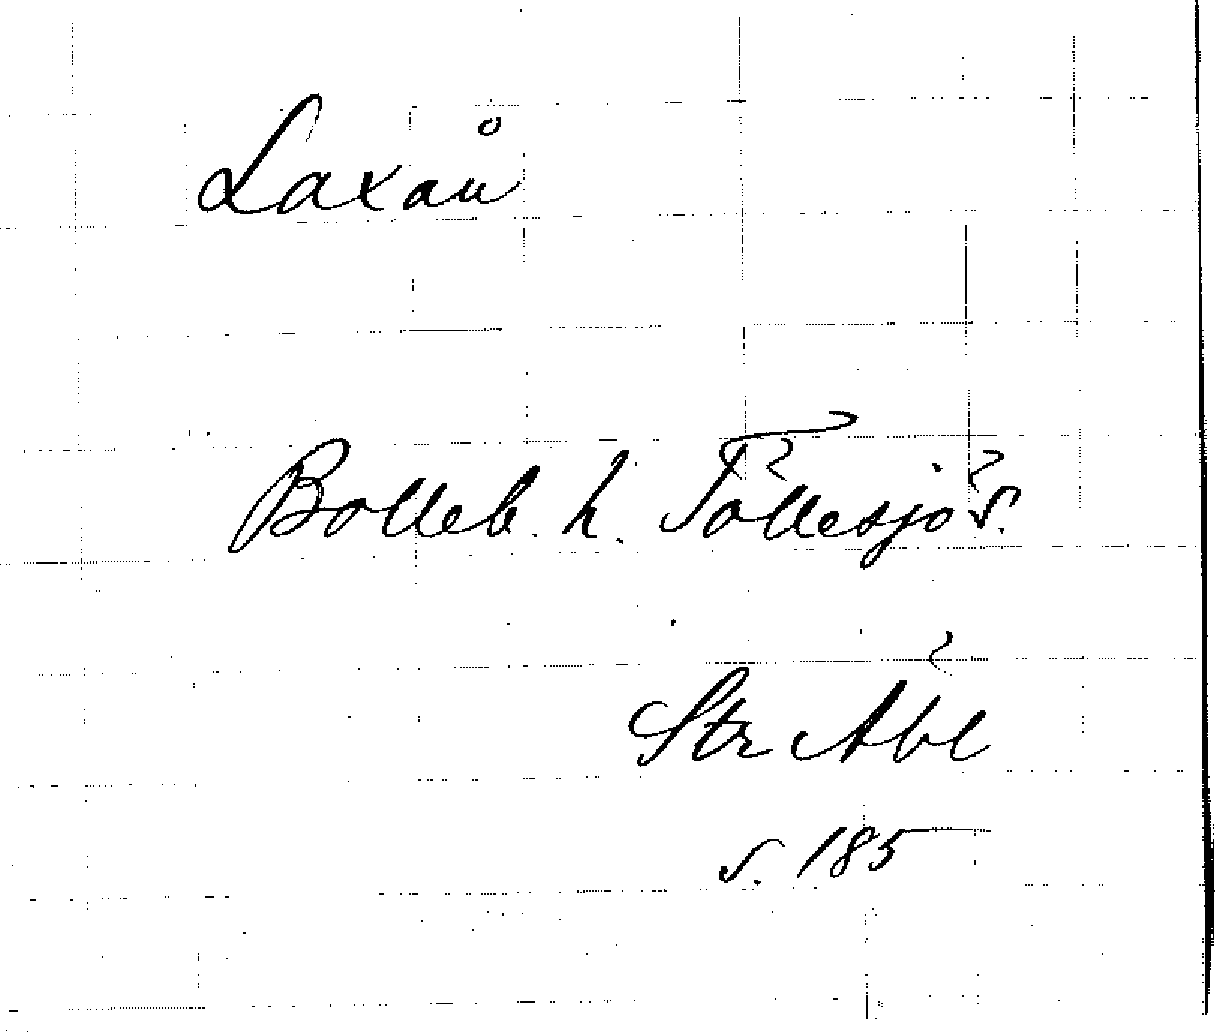 Laxån
Bolleb. h. Töllesjö s.
Str Abl
s. 185